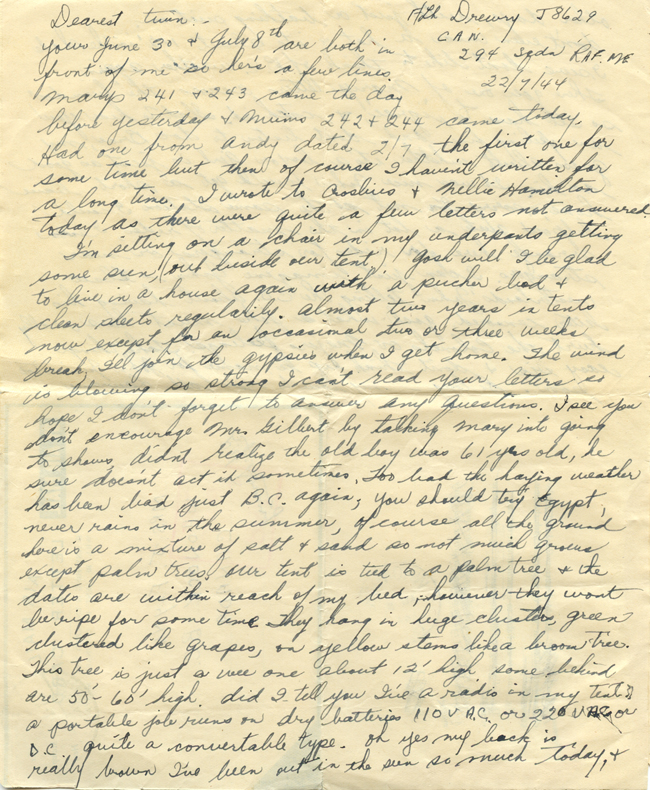 Dearest twin: -
F/Lt Drewry J8629
CAN.
294 Sqdn RAF. ME
22/7/44
yours June 30 & July 8th are both in
front of me so here's a few lines.
Marys 241 & 243 came the day
before yesterday & Mums 242 & 244 came today.
Had one from Andy dated 2/7 the first one for
some time but then of course I haven't written for
a long time. I wrote to & Nellie Hamilton
today as there were quite a few letters not answered.
I'm setting on a chair in my underpants getting
some sun, (out beside our tent) Gosh will I be glad
to live in a house again with a bed &
clean sheets regularly. almost two years in tents
now except for an occasional two or three weeks
break, I'll join the gypsies when I get home. The wind
is blowing so strong I can't read your letters so
hope I don't forget to answer any questions. I see you
don't encourage Mr. Gilbert by talking Mary into going
to shows didn't realize the old boy was 61 yrs old, he
sure doesn't act it sometimes. Too bad the haying weather
has been bad just B.C. again; you should try Egypt,
never rains in the summer, of course all the ground
here is a mixture of salt & sand so not much grows
except palm trees. Our tent is tied to a palm tree & the
dates are within reach of my bed, however they wont
be ripe for some time. They hang in huge clusters, green
clustered like grapes, on yellow stems like a broom tree.
This tree is just a wee one about 12' high some behind
are 50'-60' high. did I tell you I've a radio in my tent?
a portable job runs on dry batteries 110 V A.C. or 220 V or
D.C. quite a convertable type. Oh yes my back is
really brown I've been out in the sun so much today, &